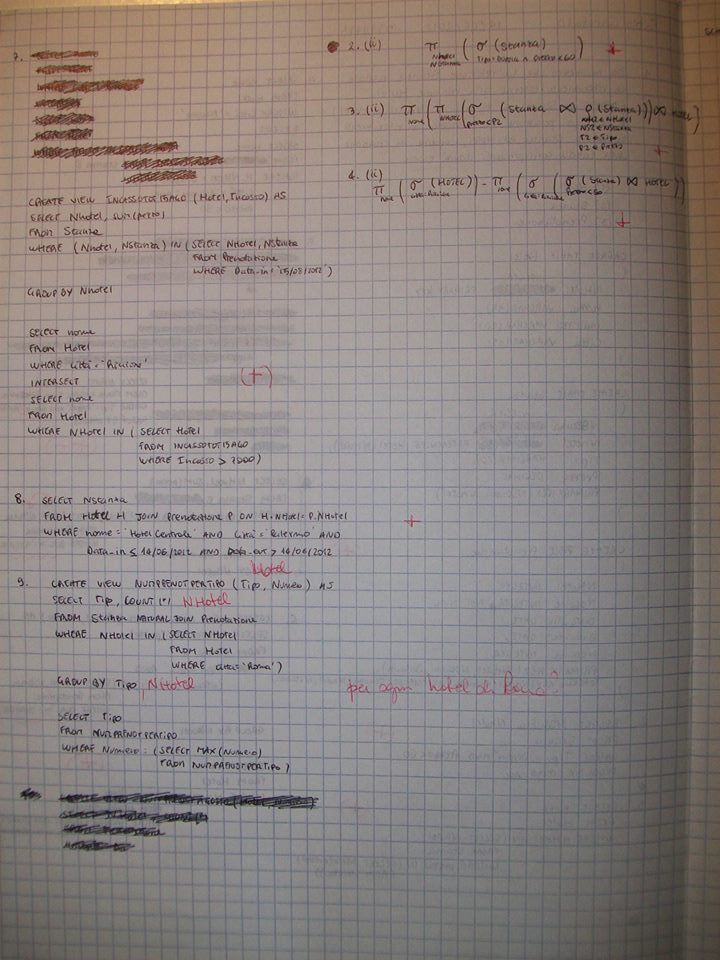 7.
CREATE VIEW INCASSOTOT15AGO (Hotel, Incasso) AS
SELECT NHotel, SUM(prezzo)
FROM Stanza
WHERE (NHotel, NStanza) IN (SELECT NHotel, NStanza
FROM Prenotazione
WHERE Data-in = '15/08/2012')
GROUP BY NHotel
SELECT nome
FROM Hotel
WHERE città = 'Riccione'
INTERSECT
(+)
SELECT nome
FROM Hotel
WHERE NHotel IN (SELECT Hotel
FROM INCASSOTOT15AGO
WHERE Incasso > 7000)
8. SELECT NStanza
FROM Hotel H JOIN Prenotazione P ON H.NHotel = P.NHotel
WHERE nome = 'Hotel Centrale' AND Città = 'Palermo' AND
+
Data-in ≤ 14/06/2012 AND Data-out > 14/06/2012
Hotel
9. CREATE VIEW NUMPRENOTPERTIPO (Tipo, Numero) AS
SELECT Tipo, COUNT(*) NHotel
FROM Stanza NATURAL JOIN Prenotazione
WHERE NHotel IN (SELECT NHotel
FROM Hotel
WHERE città = 'Roma')
GROUP BY Tipo, NHotel
per ogni hotel di Roma?
SELECT Tipo
FROM NUMPRENOTPERTIPO
WHERE Numero = (SELECT MAX(Numero)
FROM NUMPRENOTPERTIPO)
2. (ii) π ( σ (Stanza) ) +
NHotel
NStanza
prezzo < 60
3. (ii) π ( π ( σ (Stanza ⋈ ρ (Stanza))) ⋈ HOTEL)
nome NHotel prezzo < P2
NH2 ← NHotel
NS2 ← NStanza
T2 ← Tipo
P2 ← Prezzo
+
4. (ii) π ( σ (HOTEL)) - π ( σ ( σ (Stanza) ⋈ HOTEL))
+